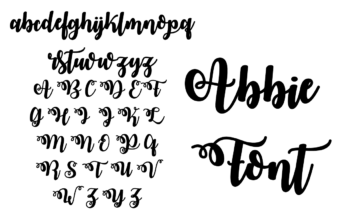 abcdefghijklmnopq
rstuvwxyz
A B C D E F
G H I J K L
M N O P Q
R S T U V
W X Y Z
Abbie
Font